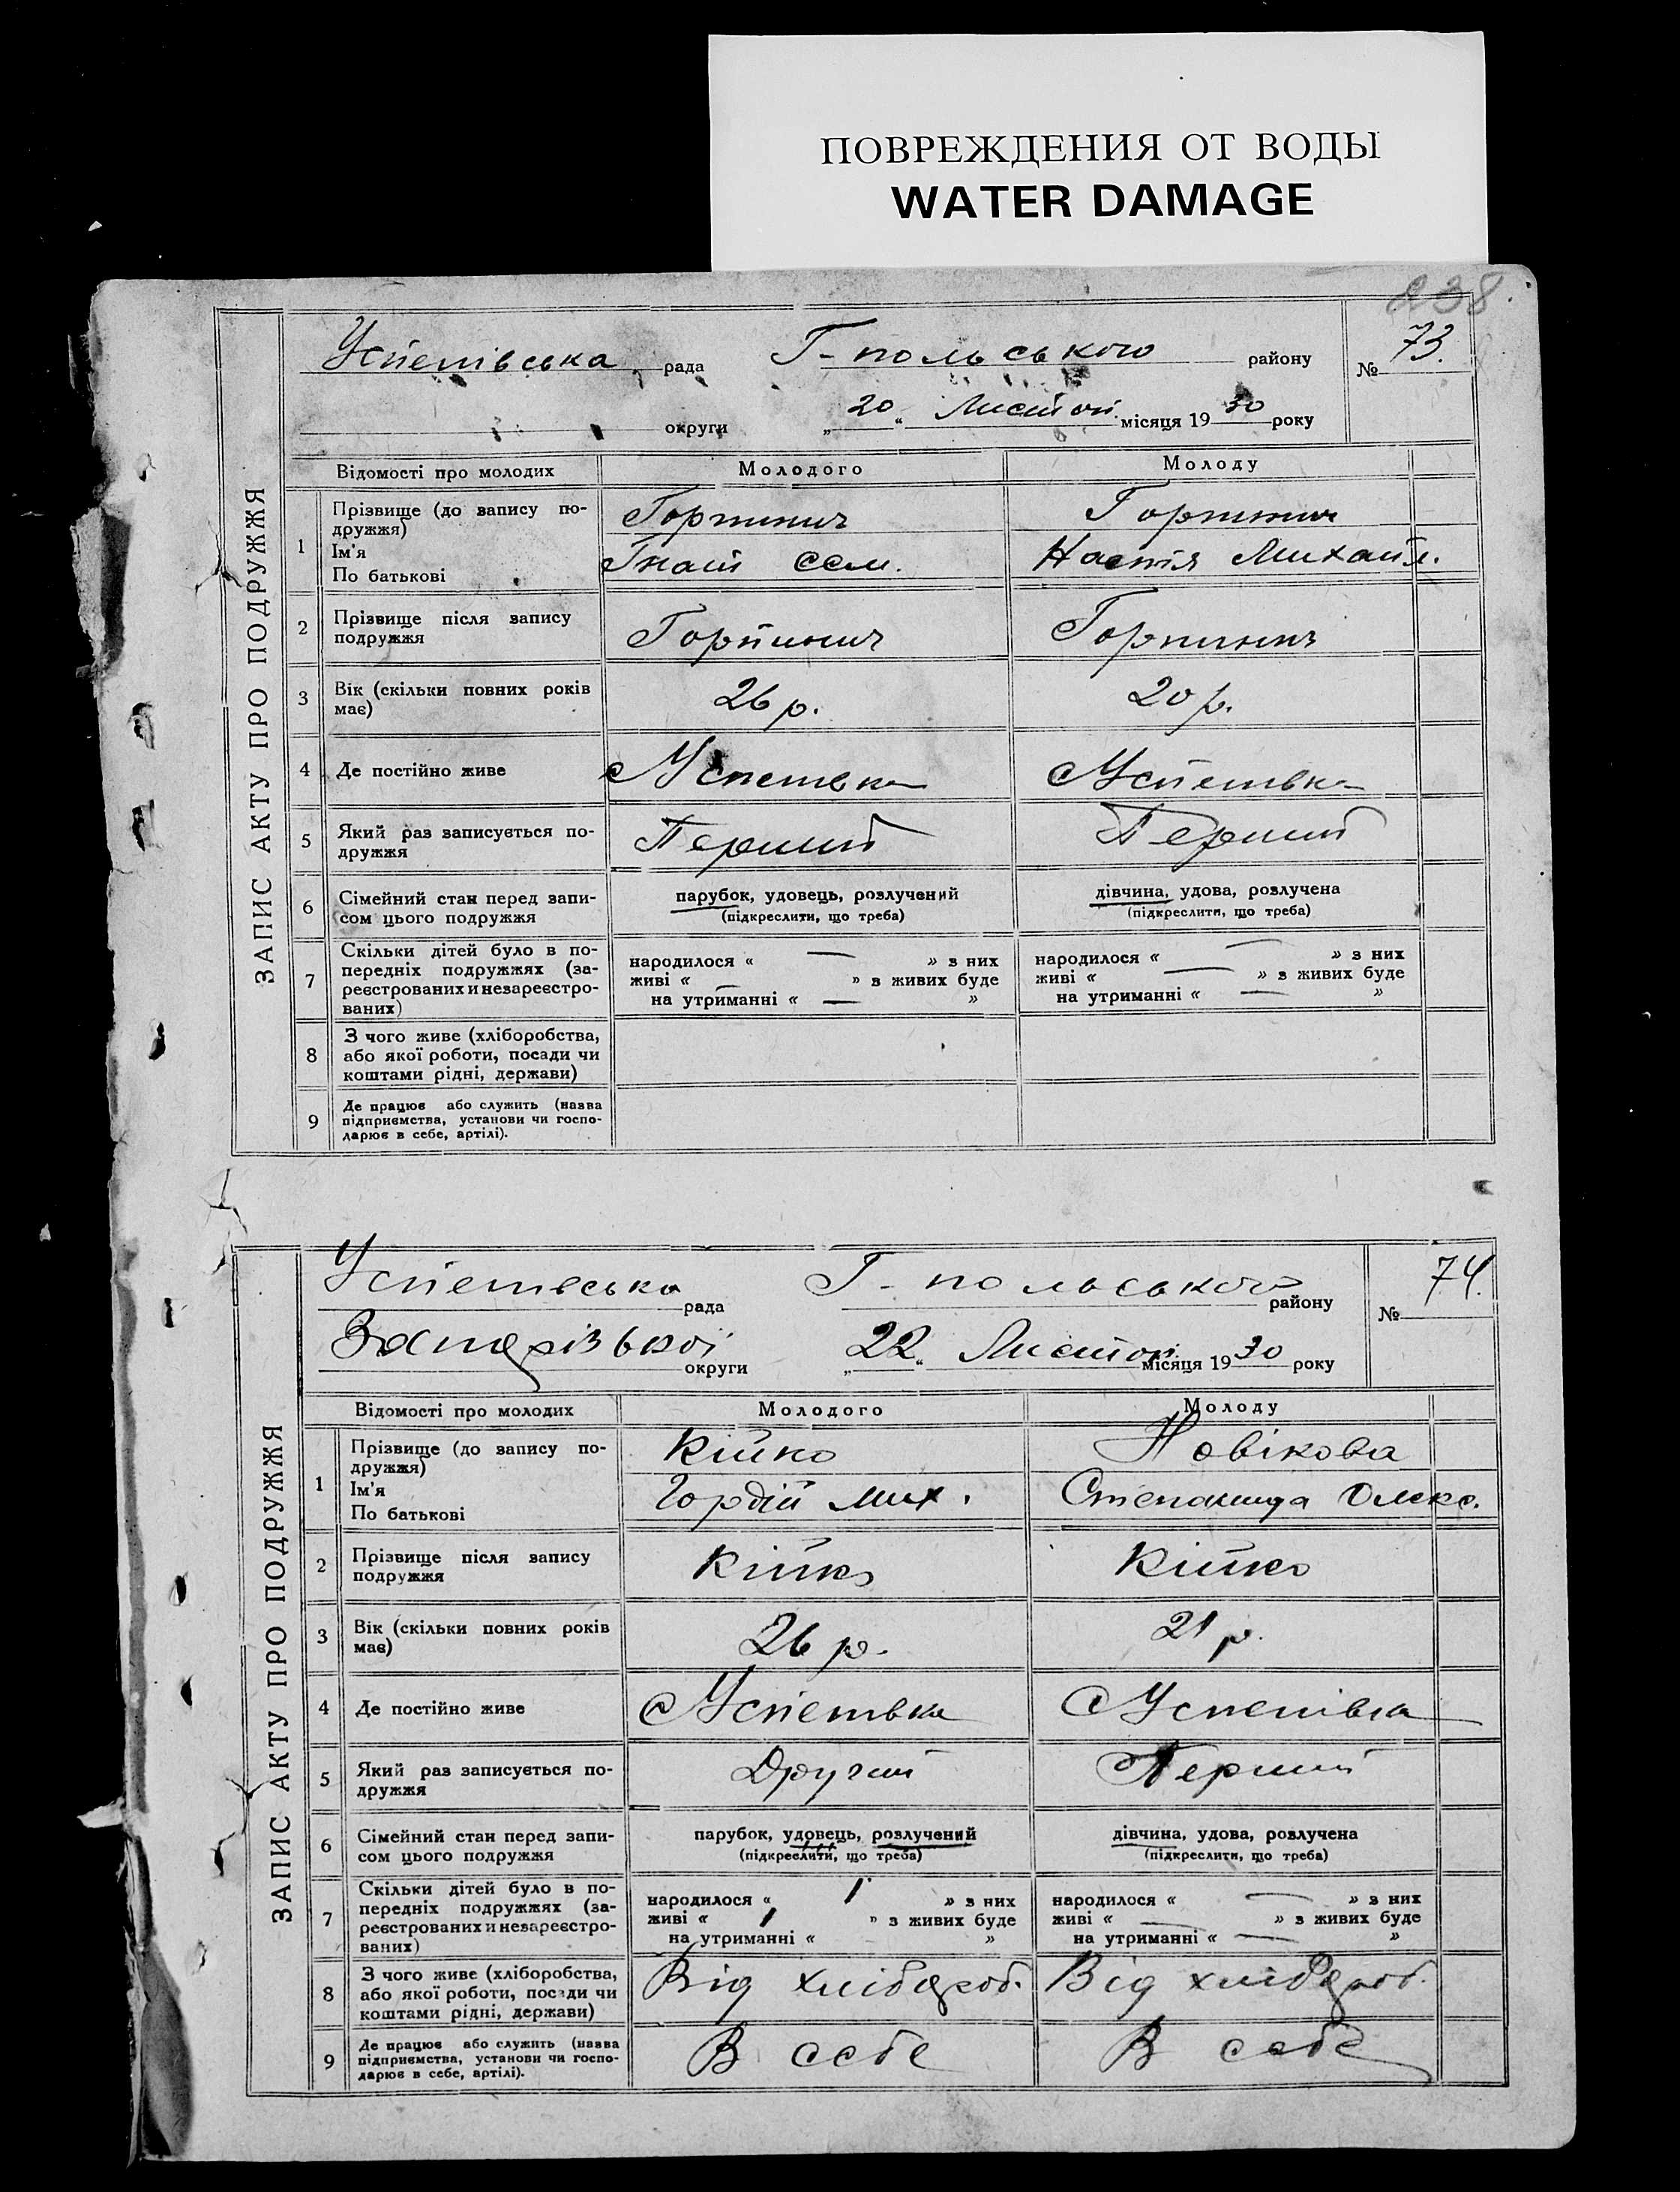 ПОВРЕЖДЕНИЯ ОТ ВОДЫ
WATER DAMAGE
238
ЗАПИС АКТУ ПРО ПОДРУЖЖЯ
Успенівська рада Г-польського району № 73.
округи „20“ Листоп. місяця 1930 року
Відомості про молодих Молодого Молоду
1 Прізвище (до запису по-
дружжя)
Ім'я
По батькові
Горпинич Горпинич
Гнат Сем. Настя Михайл.
2 Прізвище після запису
подружжя
Горпинич Горпинич
3 Вік (скільки повних років
має)
26 р. 20 р.
4 Де постійно живе с Успенівка с Успенівка
5 Який раз записується по-
дружжя
Перший Перший
6 Сімейний стан перед запи-
сом цього подружжя
парубок, удовець, розлучений дівчина, удова, розлучена
(підкреслити, що треба) (підкреслити, що треба)
7 Скільки дітей було в по-
передніх подружжях (за-
реєстрованих и незареєстро-
ваних)
народилося « — » з них народилося « — » з них
живі « — » з живих буде живі « — » з живих буде
на утриманні « — » на утриманні « — »
8 З чого живе (хліборобства,
або якої роботи, посади чи
коштами рідні, держави)
9 Де працює або служить (назва
підприємства, установи чи госпо-
дарює в себе, артілі).
ЗАПИС АКТУ ПРО ПОДРУЖЖЯ
Успенівська рада Г-польського району № 74.
Запорізької округи „22“ Листоп. місяця 1930 року
Відомості про молодих Молодого Молоду
1 Прізвище (до запису по-
дружжя)
Ім'я
По батькові
Кійко Новікова
Гордій Мих. Степанида Олекс.
2 Прізвище після запису
подружжя
Кійко Кійко
3 Вік (скільки повних років
має)
26 р. 21 р.
4 Де постійно живе с Успенівка с Успенівка
5 Який раз записується по-
дружжя
Другий Перший
6 Сімейний стан перед запи-
сом цього подружжя
парубок, удовець, розлучений дівчина, удова, розлучена
(підкреслити, що треба) (підкреслити, що треба)
7 Скільки дітей було в по-
передніх подружжях (за-
реєстрованих и незареєстро-
ваних)
народилося « 1 » з них народилося « — » з них
живі « 1 » з живих буде живі « — » з живих буде
на утриманні « » на утриманні « — »
8 З чого живе (хліборобства,
або якої роботи, посади чи
коштами рідні, держави)
Від хлібороб. Від хлібороб.
9 Де працює або служить (назва
підприємства, установи чи госпо-
дарює в себе, артілі).
В себе В себе